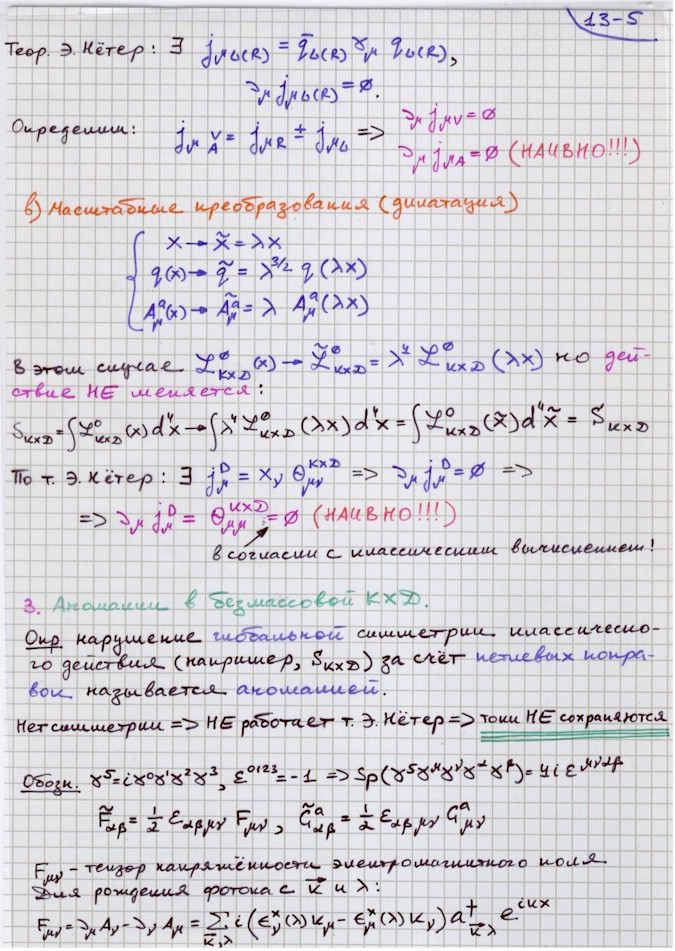 13-5
Теор. Э. Нётер: ∃ j_{μL(R)} = q̄_{L(R)} γ_μ q_{L(R)},
∂_μ j_{μL(R)} = 0.
Определим: j_{μ V/A} = j_{μR} ± j_{μL} => ∂_μ j_{μV} = 0
∂_μ j_{μA} = 0 (НАИВНО!!!)
в) Масштабные преобразования (дилатация)
x → x̃ = λx
q(x) → q̃ = λ^{3/2} q(λx)
A^a_μ(x) → Ã^a_μ = λ A^a_μ(λx)
В этом случае ℒ^0_{КХД}(x) → ℒ̃^0_{КХД} = λ^4 ℒ^0_{КХД}(λx) но дей-
ствие НЕ меняется:
S_{КХД} = ∫ℒ^0_{КХД}(x) d^4x → ∫λ^4 ℒ^0_{КХД}(λx) d^4x = ∫ℒ^0_{КХД}(x̃) d^4x̃ = S_{КХД}
По т. Э. Нётер: ∃ j^D_μ = x_ν Θ^{КХД}_{μν} => ∂_μ j^D_μ = 0 =>
=> ∂_μ j^D_μ = Θ^{КХД}_{μμ} = 0 (НАИВНО!!!)
в согласии с классическим вычислением!
3. Аномалии в безмассовой КХД.
Опр нарушение глобальной симметрии классическо-
го действия (например, S_{КХД}) за счёт петлевых попра-
вок называется аномалией.
Нет симметрии => НЕ работает т. Э. Нётер => токи НЕ сохраняются
Обозн. γ^5 = iγ^0γ^1γ^2γ^3, ε^{0123} = -1 => Sp(γ^5γ^μγ^νγ^αγ^β) = 4i ε^{μναβ}
F̃_{αβ} = 1/2 ε_{αβμν} F_{μν}, G̃^a_{αβ} = 1/2 ε_{αβμν} G^a_{μν}
F_{μν} - тензор напряжённости электромагнитного поля.
Для рождения фотона с k⃗ и λ:
F_{μν} = ∂_μ A_ν - ∂_ν A_μ = Σ_{k⃗,λ} i(ϵ^*_ν(λ) k_μ - ϵ^*_μ(λ) k_ν) a^†_{k⃗λ} e^{ikx}